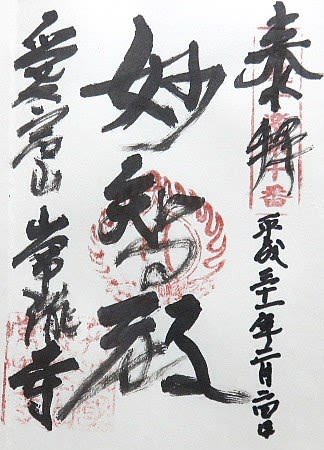 奉拝
平成三十一年二月二四日
妙智殿
愛宕山 常隆寺